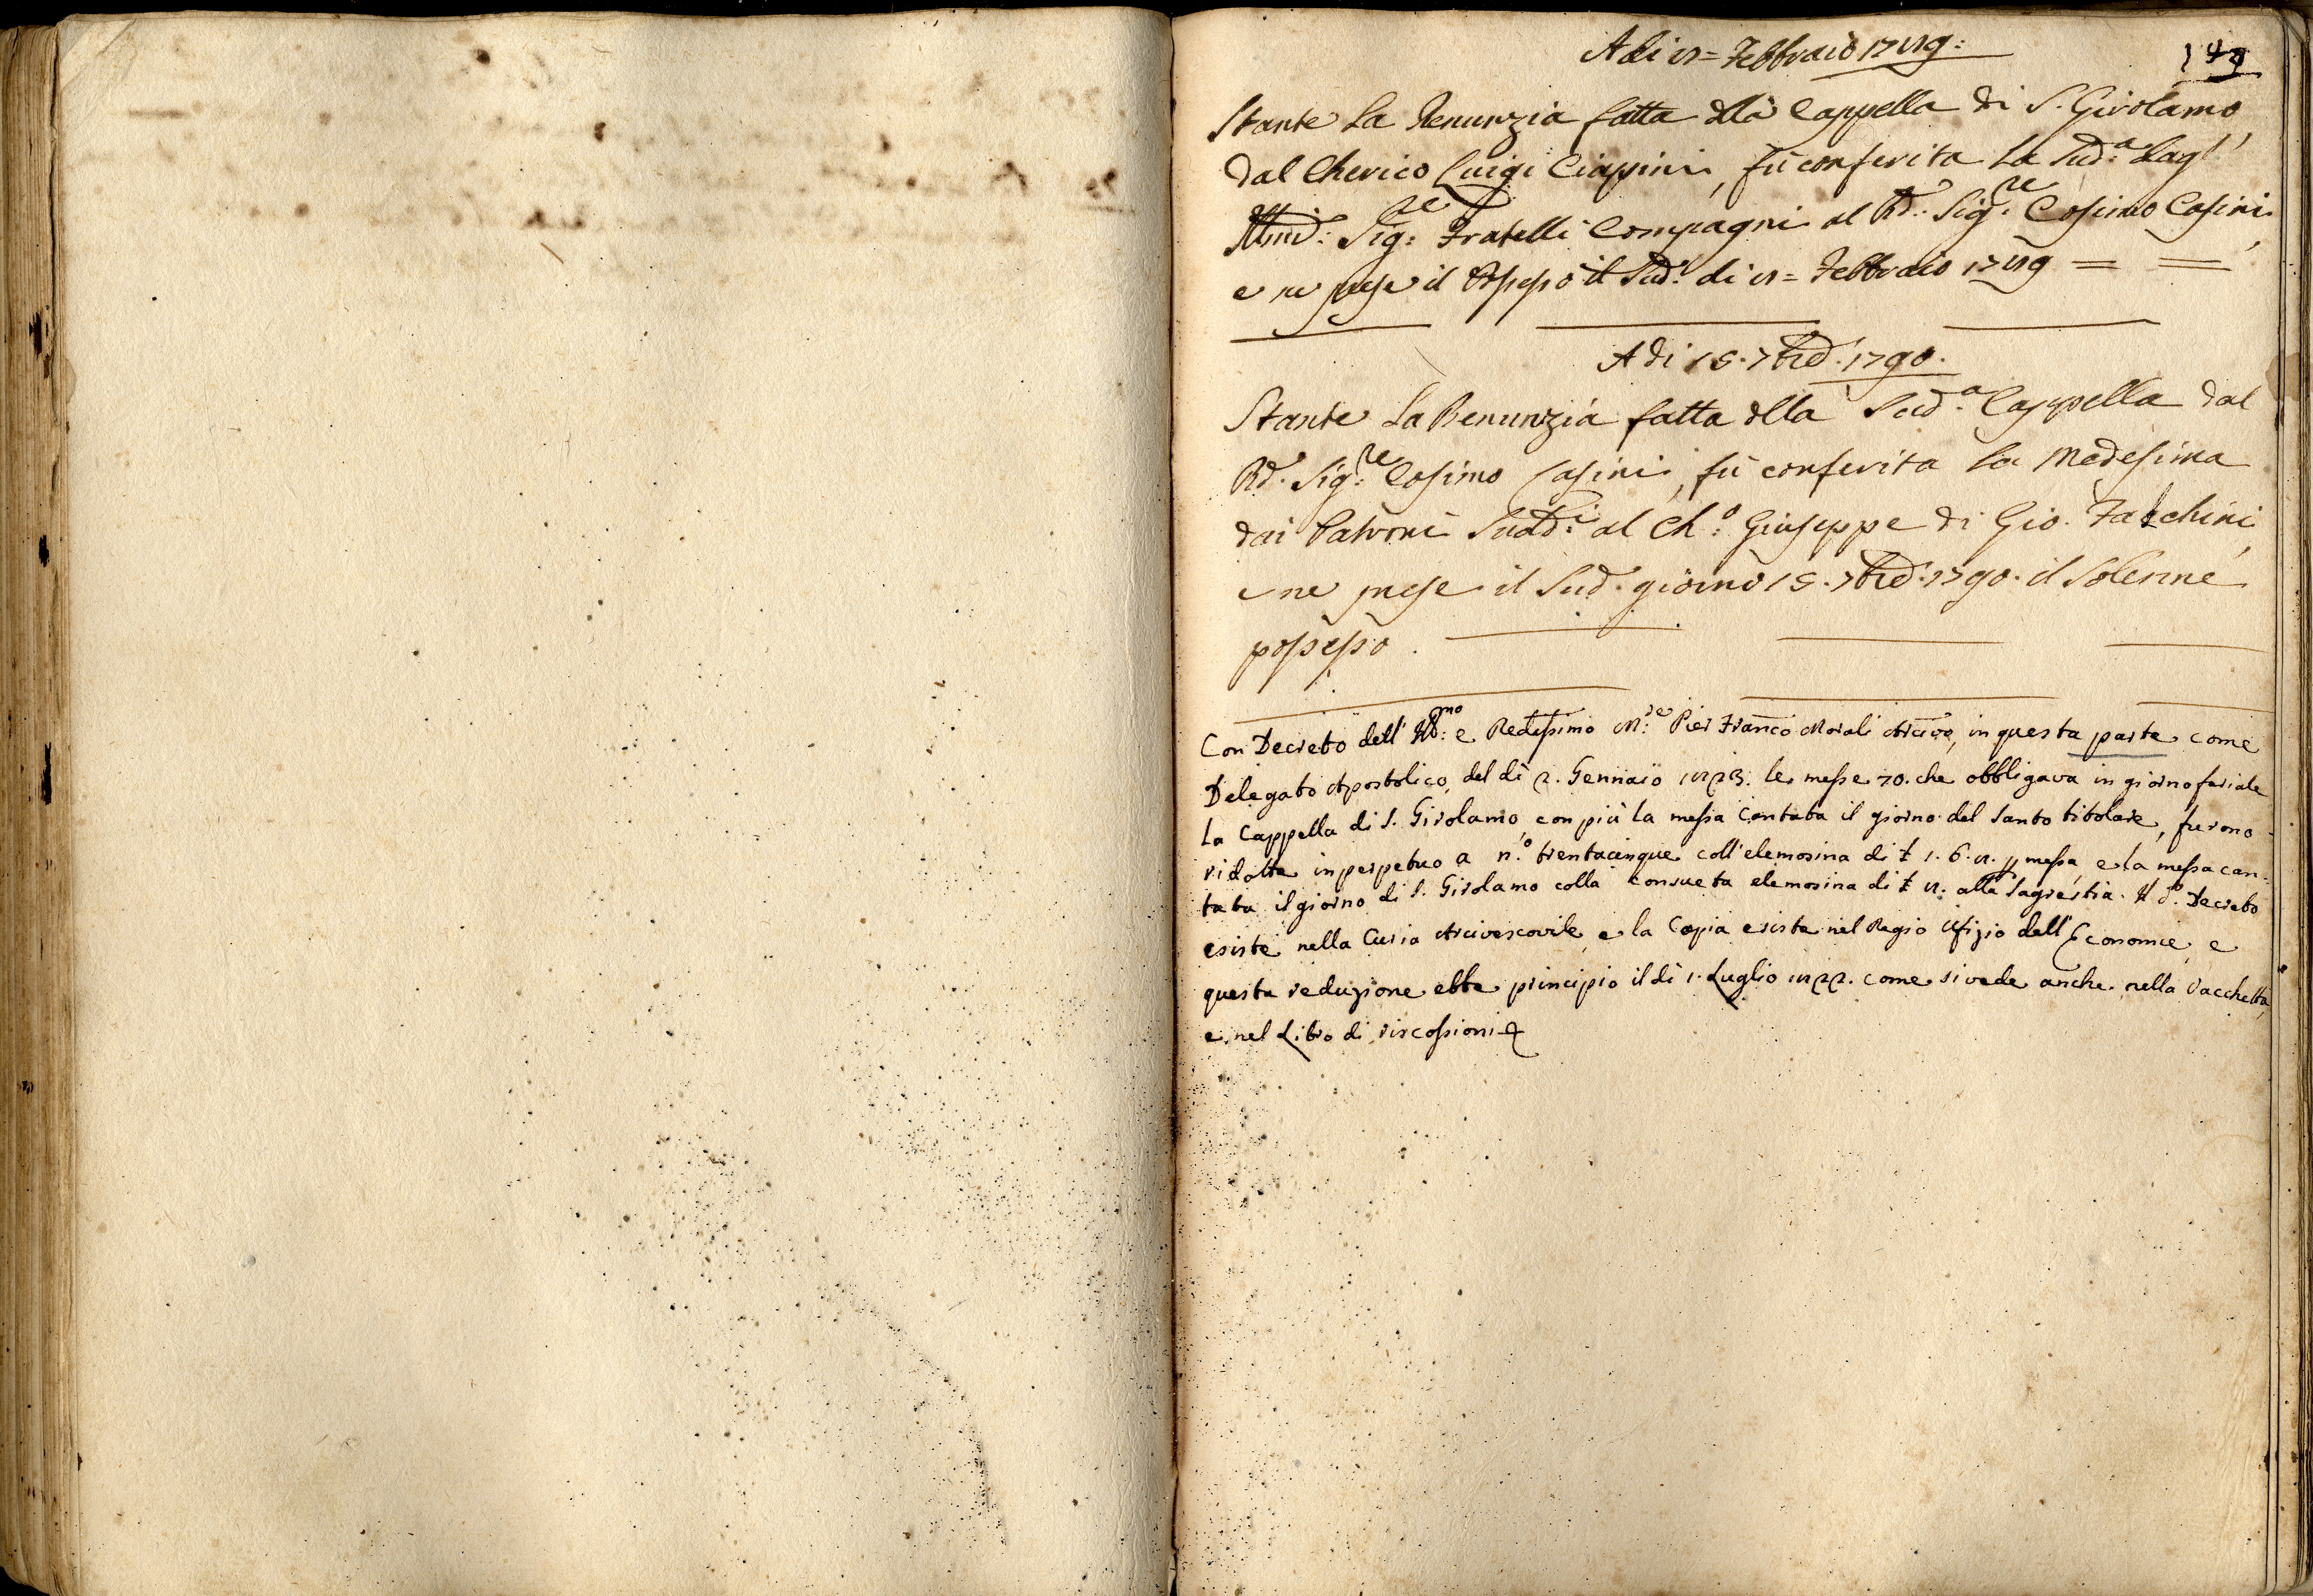 149
A di 8 = Febbraio 1789:
Stante La Renunzia fatta dlla Cappella di S. Girolamo
dal Cherico Luigi Ciappini, fù conferita la Sud.ª dagl'
Sig:re Fratelli Compagni al Rd: Sig:re Cosimo Casini,
e ne prese il Possesso il Sud.° di 8 = Febbraio 1789 = =
A di 15. 7bre. 1790.
Stante La Renunzia fatta dlla Sud.ª Cappella dal
Rd. Sig:re Cosimo Casini, fù conferita La Medesima
dai Patroni Sudd:i al Ch:º Giuseppe di Gio. Falchini,
e ne prese il Sud. giorno 15. 7bre. 1790. il Solenne
possesso.
Con Decreto dell' Ill:mo e Redissimo M:re Pier Franco Morali Arcivo, in questa parte come
Delegato Apostolico, del dì 2. Gennaio 1823. le messe 70. che obbligava in giorno feriale
la Cappella di S. Girolamo, con più la messa cantata il giorno del Santo titolare, furono
ridotte in perpetuo a n.º trentacinque coll'elemosina di £ 1. 6. 8. p messa, e la messa can:
tata il giorno di S. Girolamo colla consueta elemosina di £ 8. alla Sagrestia. Il d.º Decreto
esiste nella Curia Arcivescovile, e la Copia esiste nel Regio Ufizio dell'Economie, e
questa reduzione ebbe principio il dì 1. Luglio 1822. come si vede anche nella Vacchetta,
e nel Libro di riscossioni